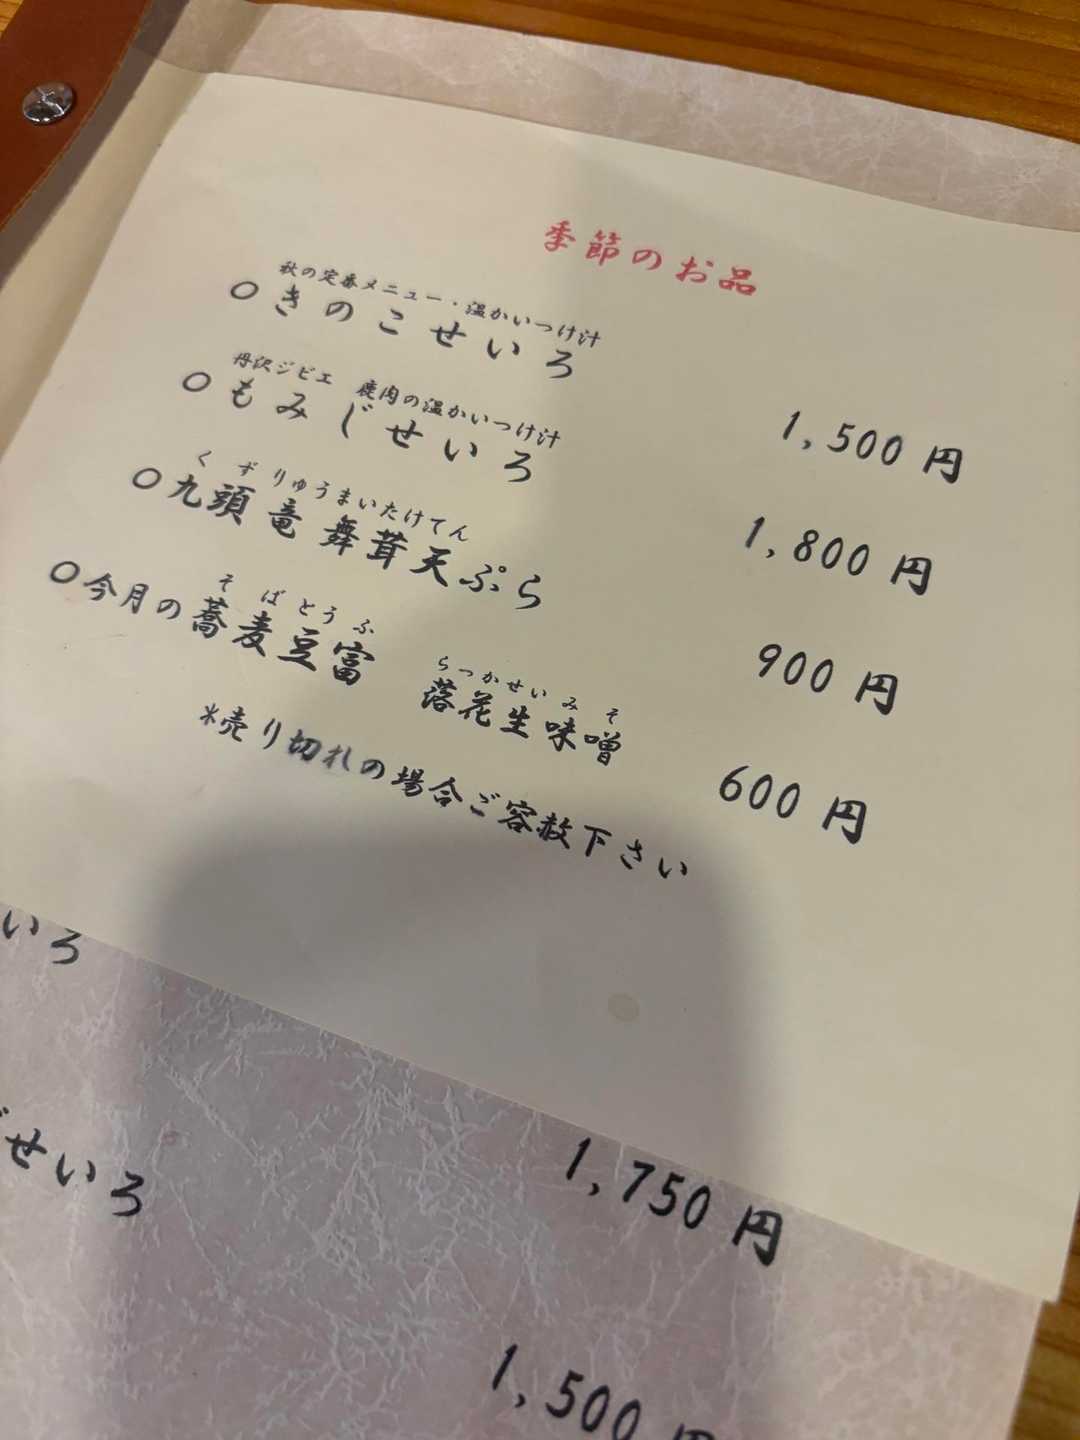 季節のお品
秋の定番メニュー・温かいつけ汁
○きのこせいろ 1,500円
丹沢ジビエ 鹿肉の温かいつけ汁
○もみじせいろ 1,800円
くずりゅうまいたけてん
○九頭竜舞茸天ぷら 900円
そばとうふ
らっかせいみそ
○今月の蕎麦豆富 落花生味噌 600円
*売り切れの場合ご容赦下さい
いろ
せいろ 1,750円
1,500円